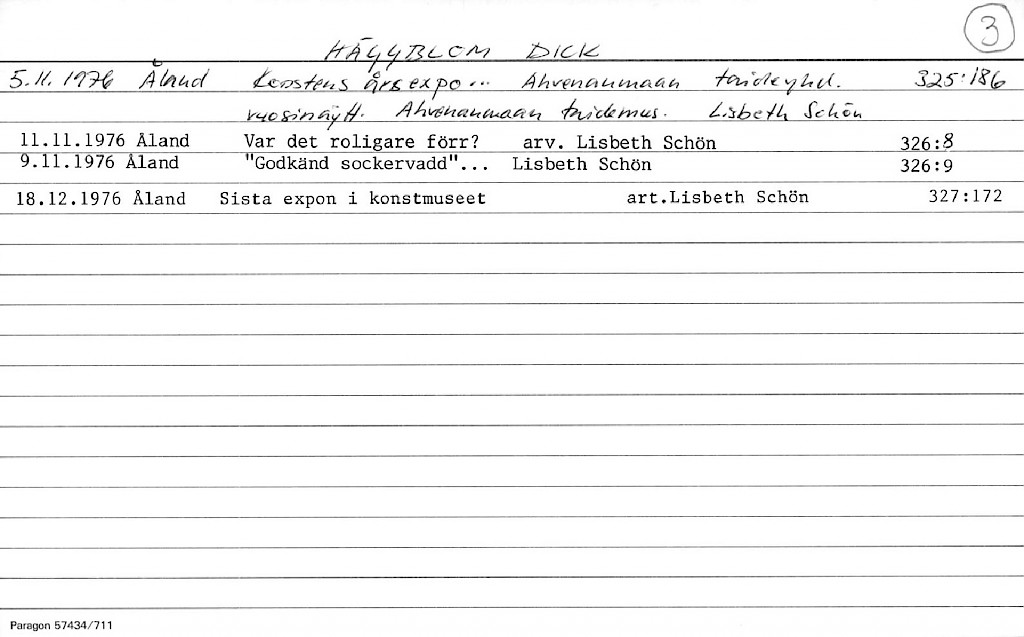 3
HÄGGBLOM DICK
5.11.1976 Åland Konstens årsexpo... Ahvenanmaan taideyhd. 325:186
vuosinäytt. Ahvenanmaan taidemus. Lisbeth Schön
11.11.1976 Åland Var det roligare förr? arv. Lisbeth Schön 326:8
9.11.1976 Åland "Godkänd sockervadd"... Lisbeth Schön 326:9
18.12.1976 Åland Sista expon i konstmuseet art.Lisbeth Schön 327:172
Paragon 57434/711